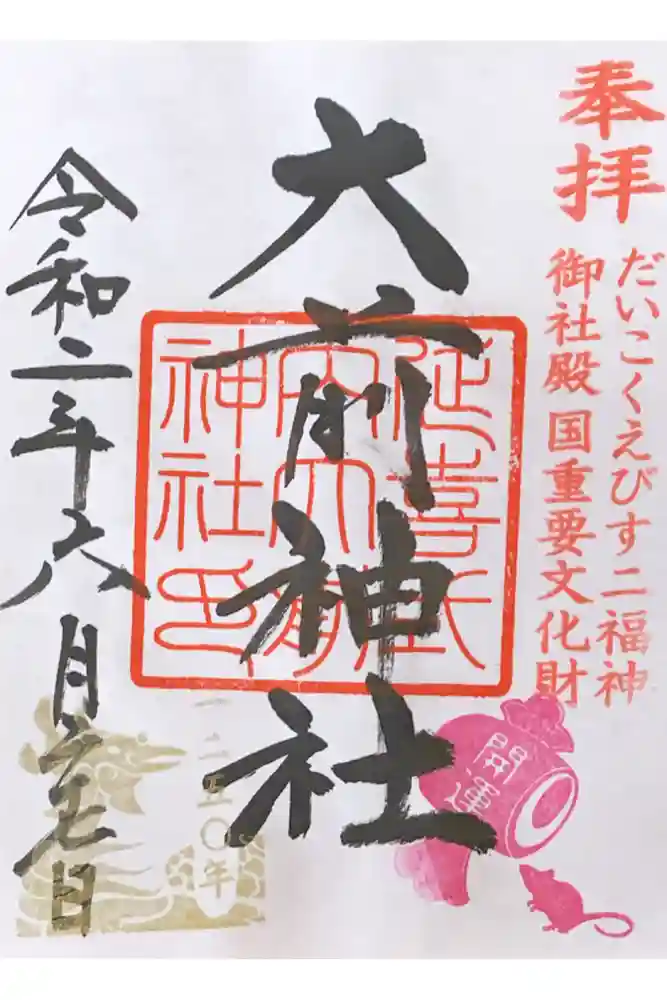 奉拝
だいこくえびす二福神
御社殿国重要文化財
大前神社
延喜式
内大前
神社印
開運
令和二年六月二七日
一二五〇年